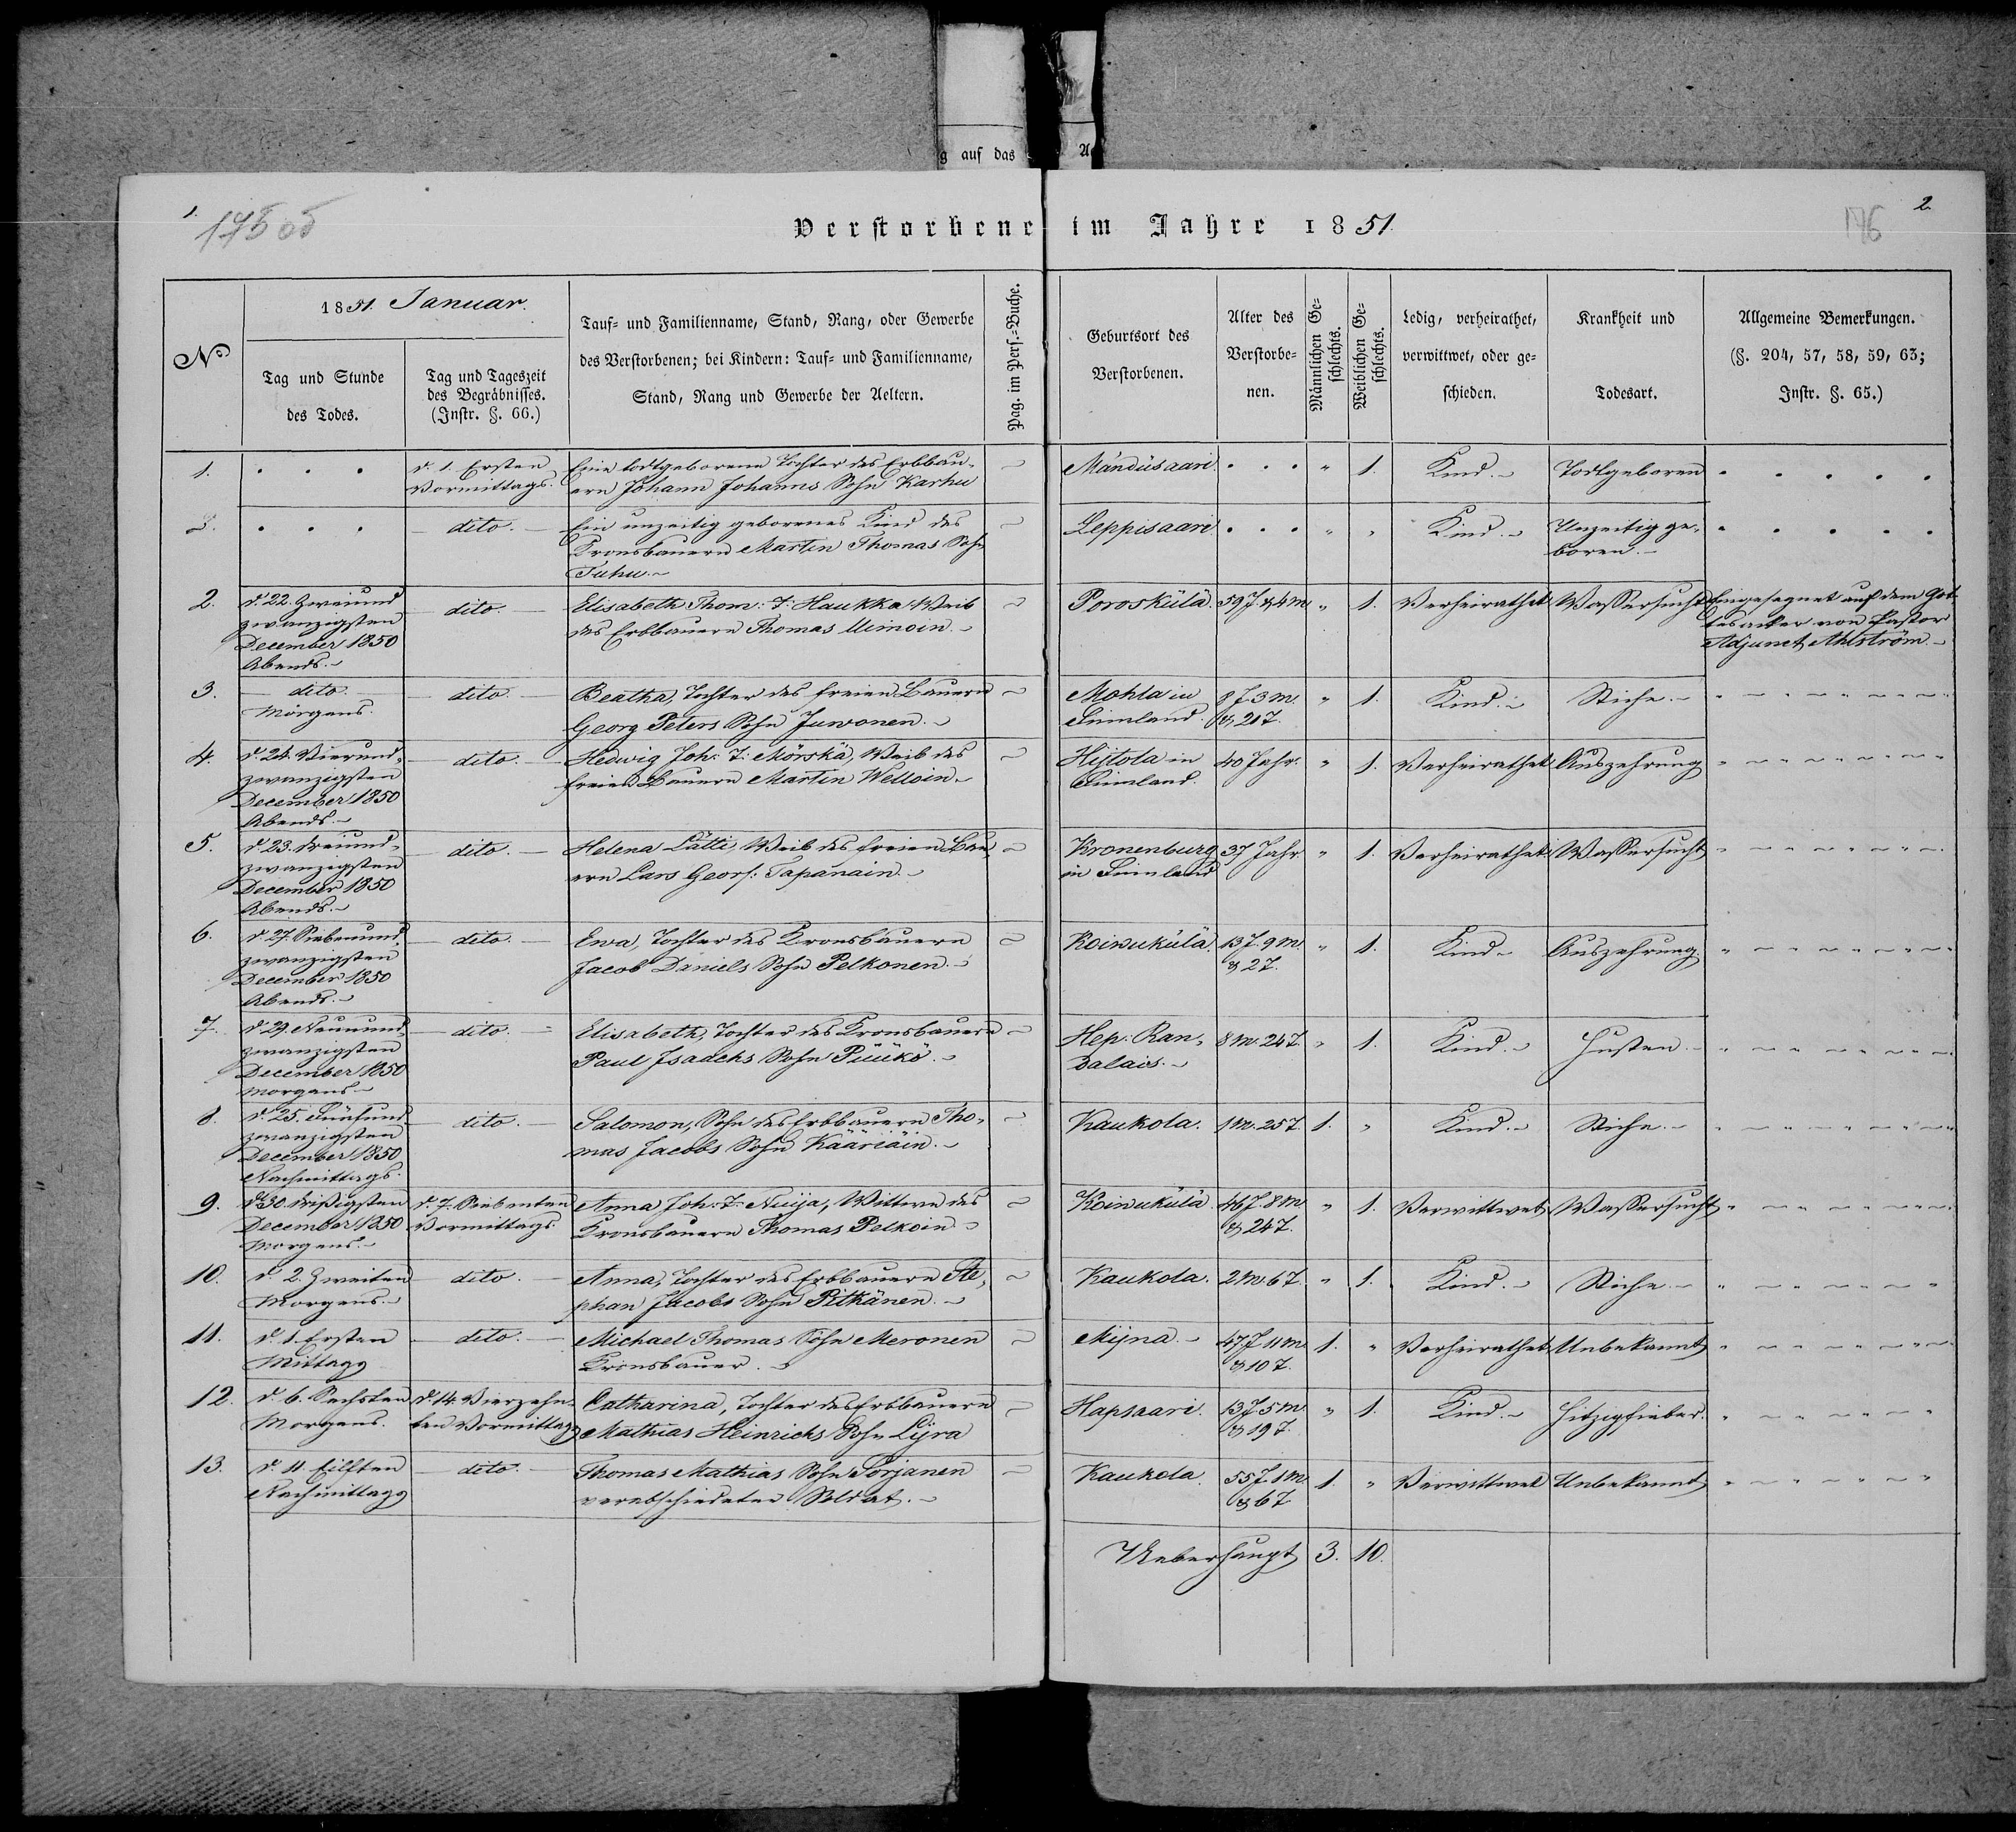 g auf das
A
1.
175 05
Verstorbene im Jahre 1851.
176
2.
No
1851. Januar.
Tag und Stunde
des Todes.
Tag und Tageszeit
des Begräbnisses.
(Instr. §. 66.)
Tauf= und Familienname, Stand, Rang, oder Gewerbe
des Verstorbenen; bei Kindern: Tauf= und Familienname,
Stand, Rang und Gewerbe der Aeltern.
Pag. im Pers.=Buche.
Geburtsort des
Verstorbenen.
Alter des
Verstorbe=
nen.
Männlichen Ge=
schlechts.
Weiblichen Ge=
schlechts.
Ledig, verheirathet,
verwittwet, oder ge=
schieden.
Krankheit und
Todesart.
Allgemeine Bemerkungen.
(§. 204, 57, 58, 59, 63;
Instr. §. 65.)
1. d. 1. Ersten Eine todtgeborene Tochter des Erbbau- Mándüsaari. " 1. Kind. Todtgeboren
Vormittags. ern Johann Johanns Sohn Karhu
dito. Ein unzeitig geborenes Kind des Leppisaari " " Kind. Unzeitig ge-
Kronsbauern Martin Thomas Sohn boren.
Tuhu.
2. d. 22. Zweiund dito. Elisabeth Thom: T: Haukka Weib Poroskülä. 59 J. & 4 M. " 1. Verheirathet Wassersucht Eingesegnet auf dem Got
zwanzigsten des Erbbauern Thomas Uimoin. tesacker von Pastor
December 1850 Adjunct Ahlström.
Abends.
3. dito. dito. Beatha, Tochter des freien Bauern Mohla in 8 J. 3 M. " 1. Kind. Stiche.
Morgens. Georg Peters Sohn Juwonen. Finnland. & 20 T.
4. d. 24. Vierund- dito. Hedwig Joh: T: Mörskä, Weib des Hijtola in 40 Jahr. " 1. Verheirathet Auszehrung
zwanzigsten freien Bauern Martin Welloin. Finnland.
December 1850
Abends.
5. d. 23. Dreiund- dito. Helena Lätti Weib des freien Bau- Kronenburg 37 Jahr. " 1. Verheirathet Wassersucht
zwanzigsten ern Lars Geors: Tapanain. in Finnland
December 1850
Abends.
6. d. 27. Siebenund- dito. Ewa, Tochter des Kronsbauern Koiwukülä. 13 J. 9 M. " 1. Kind. Auszehrung.
zwanzigsten Jacob Daniels Sohn Pelkonen. & 2 T.
December 1850
Abends.
7. d. 29. Neunund- dito. Elisabeth, Tochter des Kronsbauern Hep: Ran- 8 M. 24 T. " 1. Kind. Husten.
zwanzigsten Paul Isaachs Sohn Püükö. dalais.
December 1850
Morgens
8. d. 25. Fünfund- dito. Salomon, Sohn des Erbbauern Tho- Kaukola. 1 M. 25 T. 1. " Kind. Stiche.
zwanzigsten mas Jacobs Sohn Kääriäin.
December 1850
Nachmittags.
9. d. 30. Drißigsten d. 7. Siebenten Anna Joh: T: Nuija, Wittwe des Koiwukülä 46 J. 8 M. " 1. Verwittwet Wassersucht
December 1850 Vormittags. Kronsbauern Thomas Pelkoin & 24 T.
Morgens.
10. d. 2. Zweiten dito. Anna, Tochter des Erbbauern Ste- Kaukola. 2 M. 6 T. " 1. Kind. Stiche
Morgens. phan Jacobs Sohn Pitkänen.
11. d. 1. Ersten dito. Michael Thomas Sohn Meronen Mijna. 47 J. 11 M. 1. " Verheirathet Unbekannt
Mittags Kronsbauer. & 10 T.
12. d. 6. Sechsten d. 14. Vierzehn- Catharina, Tochter des Erbbauern Hapsaari. 13 J. 5 M. " 1. Kind. Hitzigfieber.
Morgens. ten Vormittags Mathias Heinrichs Sohn Lijra & 19 T.
13. d. 11. Eilften dito. Thomas Mathias Sohn Torjanen Kaukola. 55 J. 1 M. 1. " Verwittwet Unbekannt
Nachmittags verabschiedeter Soldat. & 6 T.
Ueberhaupt 3. 10.